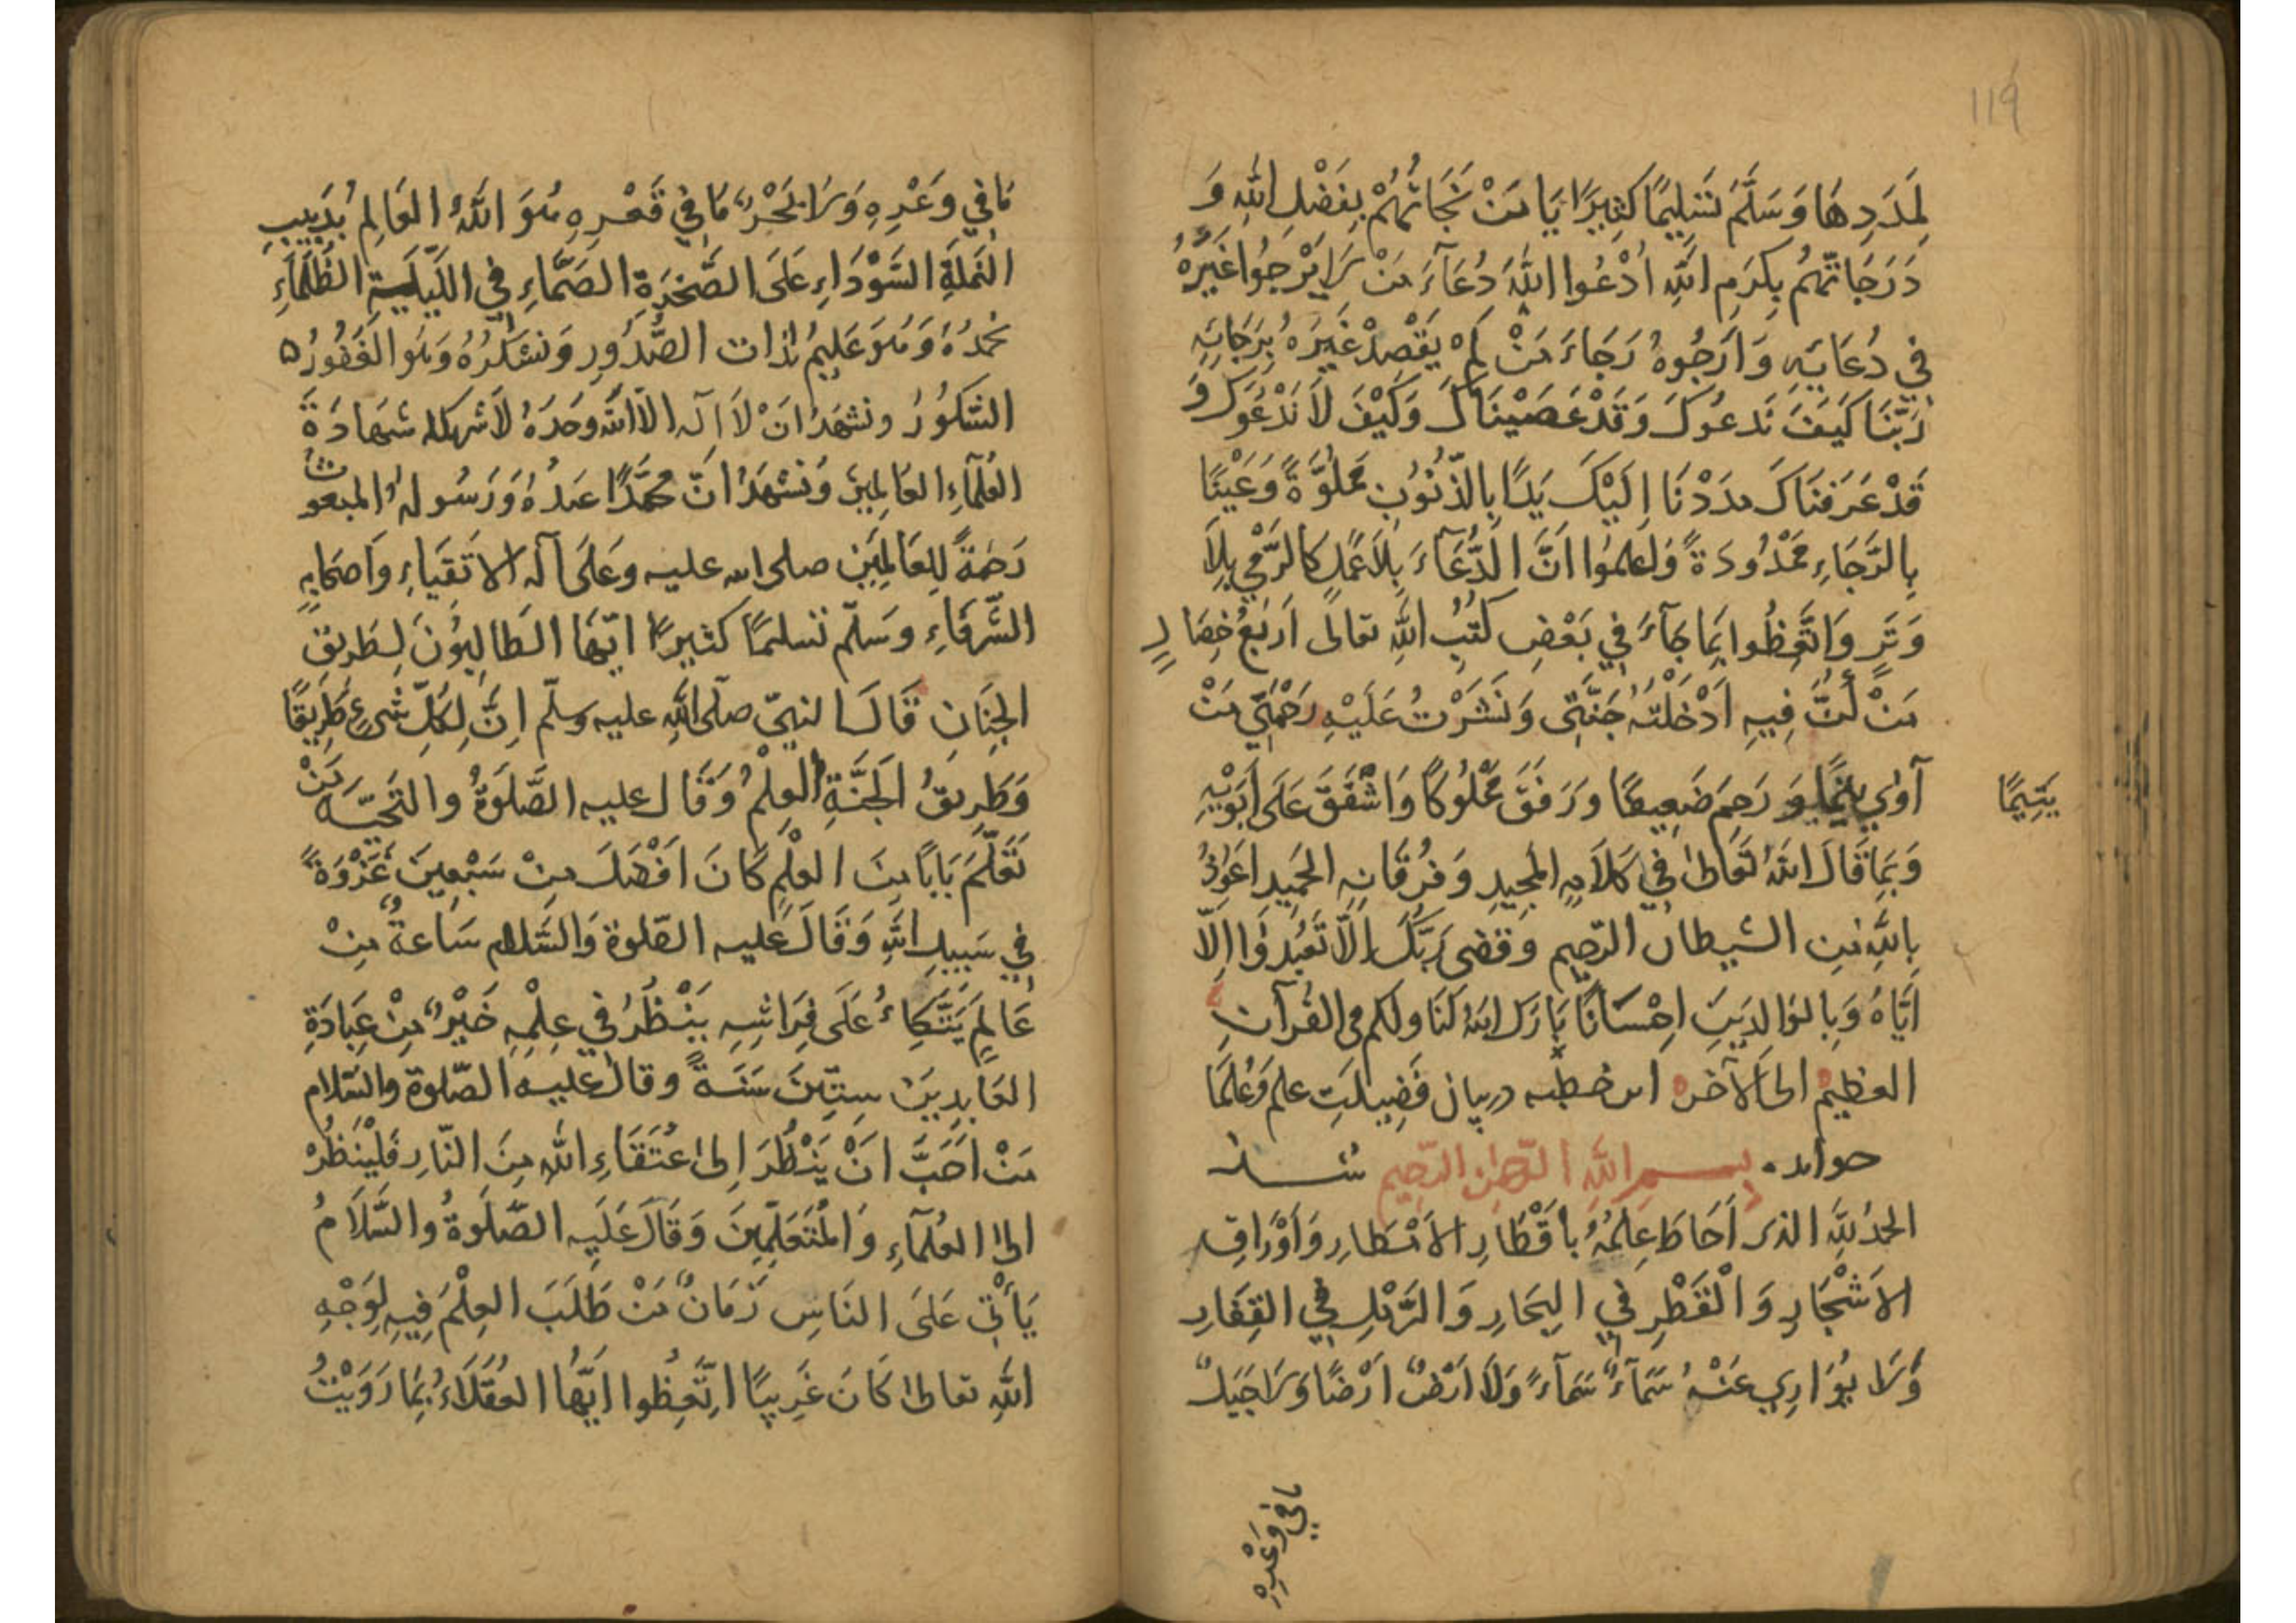 119
لِمَدَدِهَا وَسَلَّمَ تَسْلِيمًا كَثِيرًا يَا مَنْ نَجَاتُهُمْ بِفَضْلِ اللّٰهِ وَ
دَرَجَاتُهُمْ بِكَرَمِ اللّٰهِ اُدْعُوا اللّٰهَ دُعَآءَ مَنْ لَا يَرْجُوا غَيْرَهُ
فِي دُعَائِهِ وَارْجُوهُ رَجَاءَ مَنْ لَمْ يَقْصِدْ غَيْرَهُ بِرَجَائِهِ
رَبَّنَا كَيْفَ نَدْعُوكَ وَقَدْ عَصَيْنَاكَ وَكَيْفَ لَا نَدْعُوكَ وَ
قَدْ عَرَفْنَاكَ مَدَدْنَا اِلَيْكَ يَدًا بِالذُّنُوبِ مَمْلُوَّةً وَعَيْنًا
بِالرَّجَاءِ مَمْدُودَةً وَاعلموا اَنَّ الدُّعَآءَ بِلَا عَمَلٍ كَالرَّمْيِ بِلَا
وَتَرٍ وَاتَّعِظُوا بِمَا جَآءَ فِي بَعْضِ كُتُبِ اللّٰهِ تعالى اَرْبَعُ خِصَالٍ
مَنْ كُنَّ فِيهِ اَدْخَلْتُهُ جَنَّتِى وَنَشَرْتُ عَلَيْهِ رَحْمَتِي مَنْ
آوٰى يتيمًا وَ رَحِمَ ضَعِيفًا وَرَفَقَ مَمْلُوكًا وَاَشْفَقَ عَلَى اَبَوَيْهِ
يَتِيمًا
وَبِمَا قَالَ اللّٰهُ تَعَالٰى فِي كَلَامِهِ المَجِيدِ وَفُرْقَانِهِ الحَمِيدِ اَعُوذُ
بِاللّٰهِ مِنَ الشيطان الرّجيم وقضى رَبُّكَ اَلَّا تَعْبُدُوا اِلَّا
اِيَّاهُ وَبِالوَالِدَيْنِ اِحْسَانًا بَارَكَ اللّٰهُ لَنَا ولكم فى القُرآنِ
العظيم الى الآخره اين خطبه در بيان فَضِيلَتِ علم وَعُلَمَا
خوانده شد بسم اللّٰهِ الرّحمٰن الرّحيم
الحمدُ للّٰهِ الذى اَحَاطَ عِلْمُهُ بِاَقْطَارِ الاَمْطَارِ وَاَوْرَاقِ
الاَشْجَارِ وَالْقَطْرِ فِي البِحَارِ وَالرَّمْلِ فِي القِفَارِ
وَلَا يُوَارِي عَنْهُ سَمَآءٌ سَمَآءً وَلَا اَرْضٌ اَرْضًا وَلَا جَبَلٌ
مَا فِي وَعْرِهِ
مَا فِي وَعْرِهِ وَلَا بَحْرٌ مَا فِي قَعْرِهِ هُوَ اللّٰهُ العَالِمُ بِدَبِيبِ
النَّمْلَةِ السَّوْدَاءِ عَلَى الصَّخْرَةِ الصَّمَّاءِ فِي اللَّيْلَةِ الظَّلْمَاءِ
نَحْمَدُهُ وَهُوَ عَلِيمٌ بِذَات الصُّدُورِ وَنَشْكُرُهُ وَهُوَ الغَفُورُ ۵
الشَّكُورُ ونشهَدُ اَنْ لَا اِلٰه الّا اللّٰه وحدَهُ لَا شريك له شَهَادَةَ
العُلَمَآءِ العَالِمِينَ وَنَشْهَدُ اَنَّ مُحَمَّدًا عَبدُهُ وَرَسُولُهُ المبعوث
رَحْمَةً لِلعَالَمِينَ صلى الله عليه وعَلَى آلِهِ الاَتْقِيَاءِ وَاَصحَابِهِ
الشُّرَفَاءِ وَسَلَّم تسليمًا كثيرًا ايّهَا الطَالِبُونَ لِطَرِيقِ
الجِنَانِ قَالَ النبيّ صلى اللّٰهِ عليه وسلّم اِنَّ لِكُلِّ شَىْءٍ طَرِيقًا
وَطَرِيقُ الجَنَّةِ العِلْمُ وَقَالَ عليه الصَّلوٰةُ والتَحيّة مَنْ
تَعَلَّمَ بَابًا مِنَ العِلْمِ كَانَ اَفْضَلَ مِنْ سَبْعِينَ غَزْوَةً
فِي سَبِيلِ اللّٰهِ وَقَالَ عليه الصّلوة وَالسَّلام سَاعَةٌ مِنْ
عَالِمٍ يَتَّكِاءُ عَلَى فِرَاشِهِ يَنْظُرُ فِي عِلْمِهِ خَيْرٌ مِنْ عِبَادَةِ
العَابِدِينَ سِتِّينَ سَنَةً وقال عليه الصّلوة والسَّلام
مَنْ اَحَبَّ اَنْ يَنْظُرَ اِلىٰ عُتَقَاءِ اللّٰهِ مِنَ النَّارِ فَلْيَنْظُرْ
الىٰ العُلَمَآءِ وَالمُتَعَلِّمِينَ وَقَالَ عَلَيهِ الصَّلوٰةُ والسَّلَامُ
يَأْتِي عَلَى النَّاسِ زَمَانٌ مَنْ طَلَبَ العِلْمَ فِيهِ لِوَجْهِ
اللّٰهِ تعالىٰ كَانَ غَرِيبًا اِتَّعِظُوا اَيُّهَا العُقَلَاءُ بِمَا رَوَيْتُ